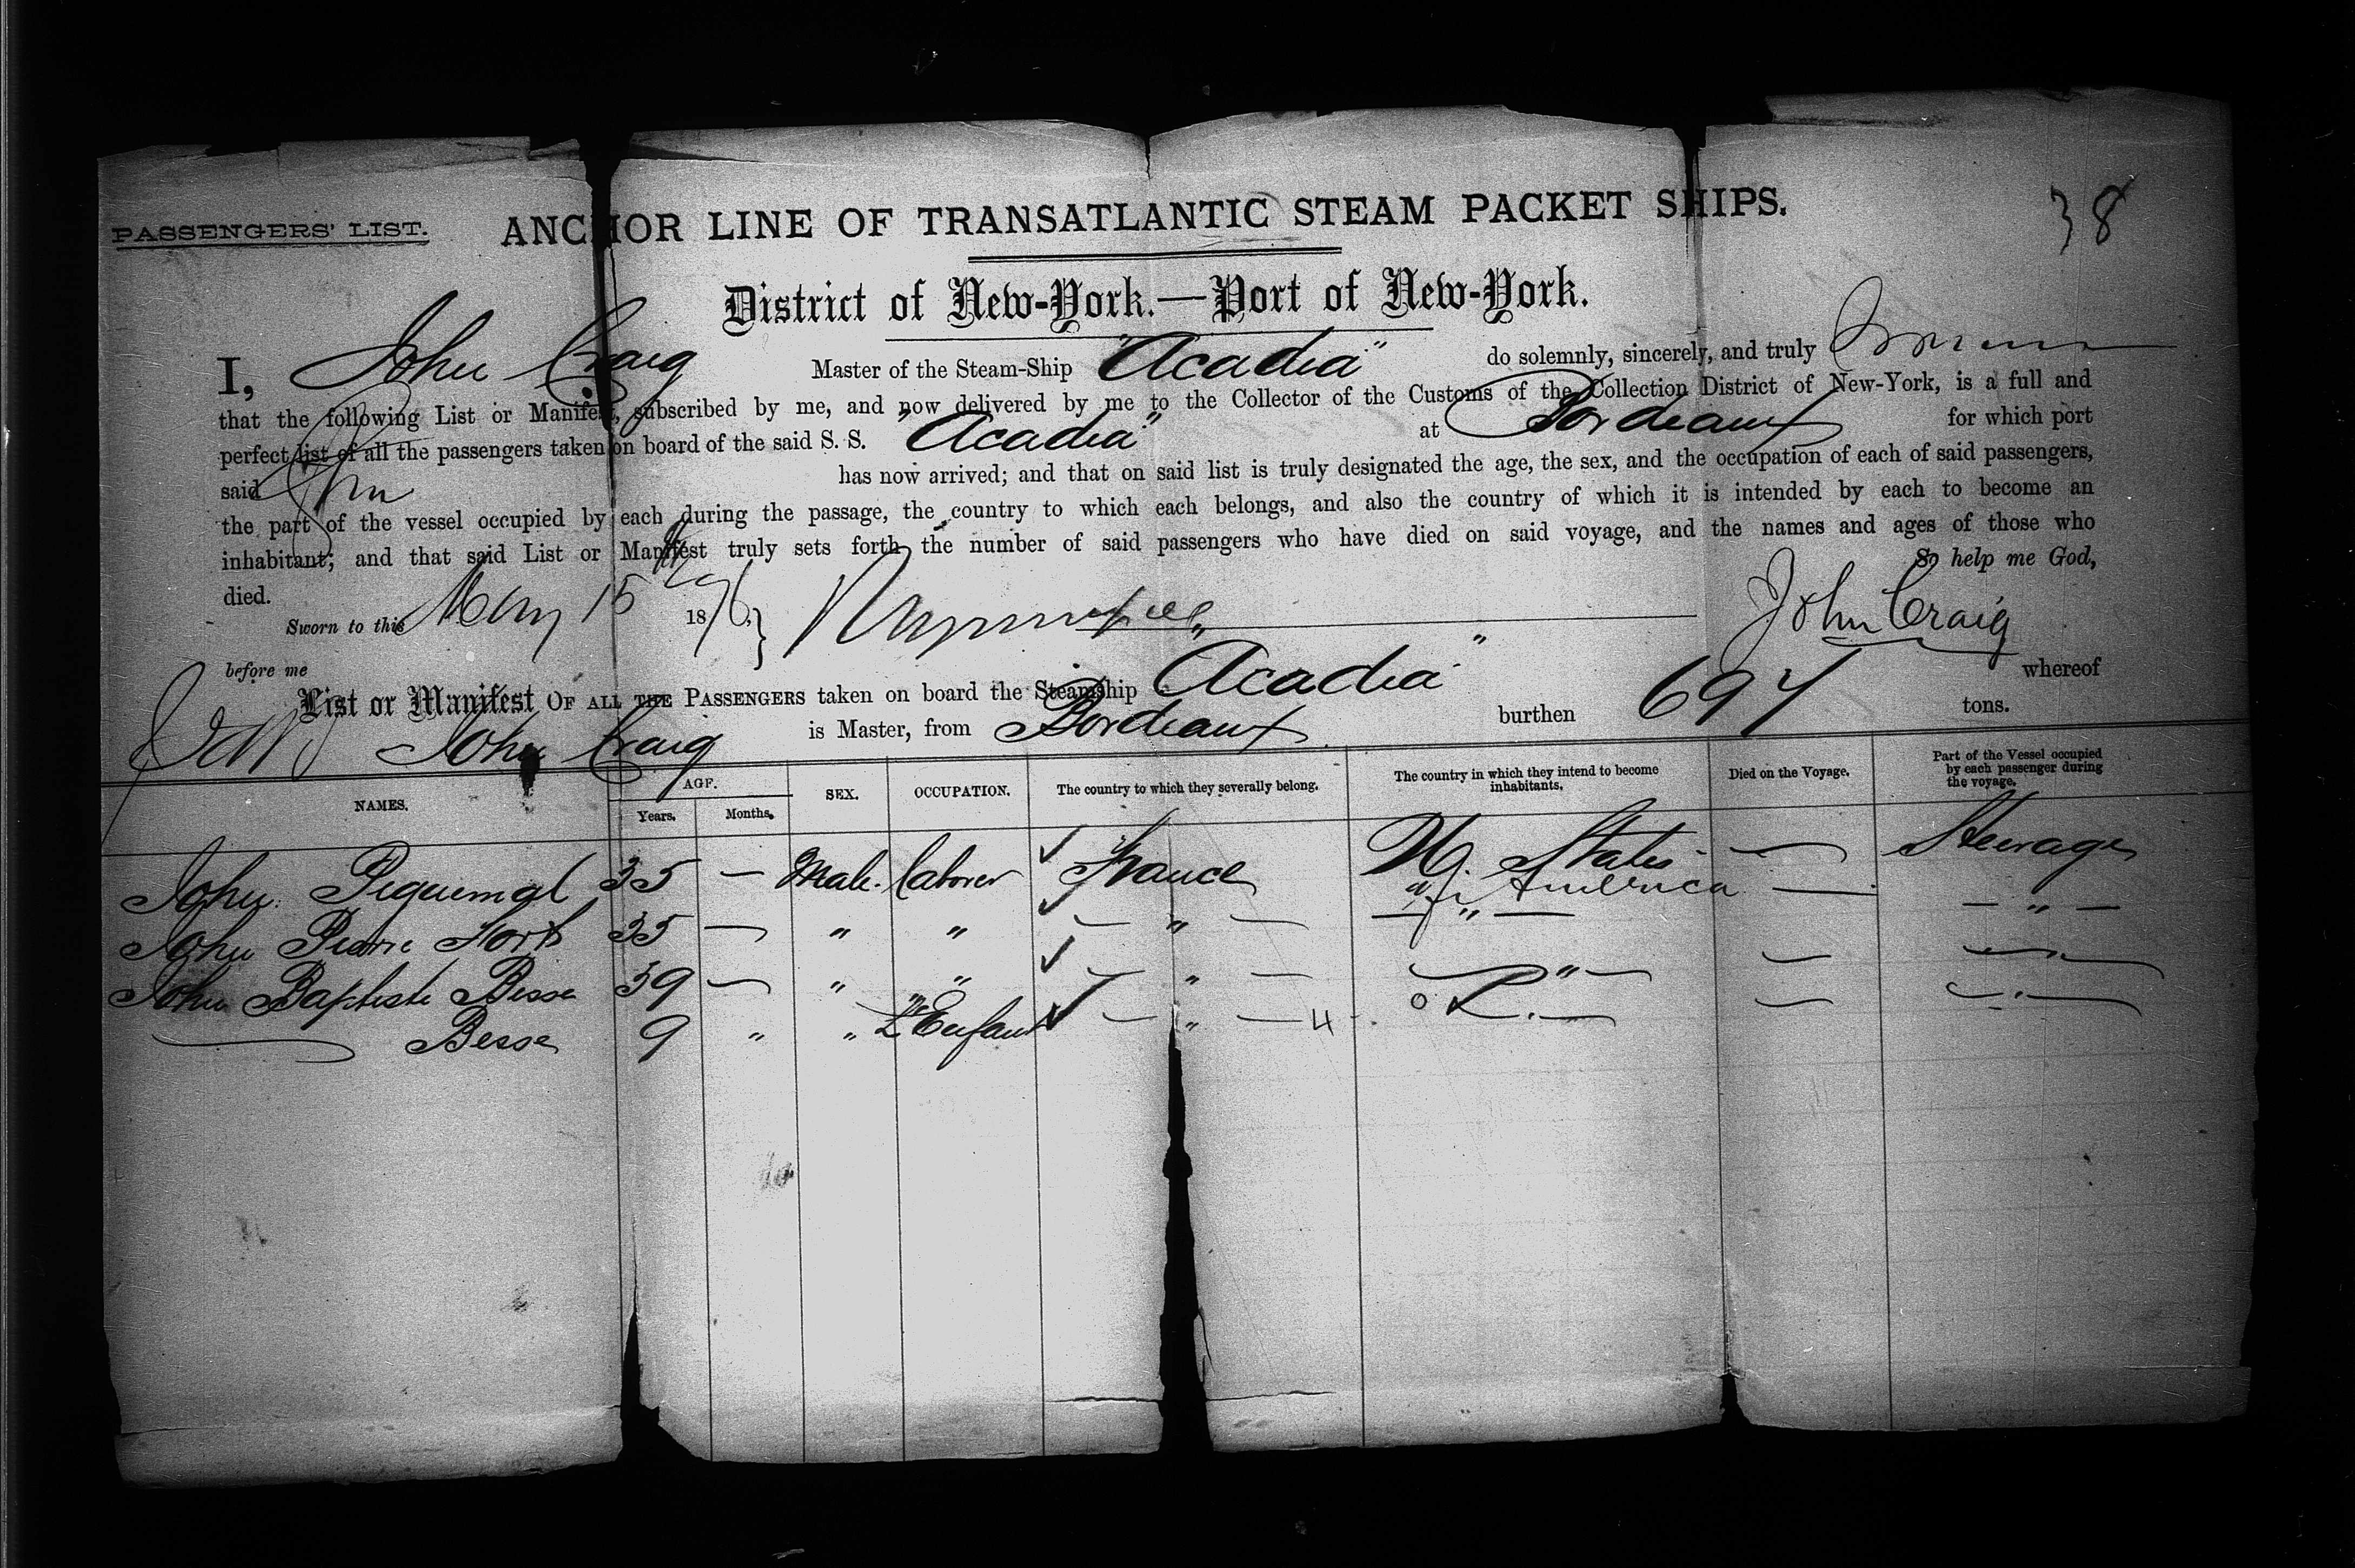 38
PASSENGERS' LIST. ANCHOR LINE OF TRANSATLANTIC STEAM PACKET SHIPS.
District of New-York.—Port of New-York.
I, John Craig Master of the Steam-Ship "Acadia" do solemnly, sincerely, and truly
that the following List or Manifest, subscribed by me, and now delivered by me to the Collector of the Customs of the Collection District of New-York, is a full and
perfect list of all the passengers taken on board of the said S. S. "Acadia" at Bordeaux for which port
said has now arrived; and that on said list is truly designated the age, the sex, and the occupation of each of said passengers,
the part of the vessel occupied by each during the passage, the country to which each belongs, and also the country of which it is intended by each to become an
inhabitant; and that said List or Manifest truly sets forth the number of said passengers who have died on said voyage, and the names and ages of those who
died. So help me God,
Sworn to this May 15 1876 John Craig
before me
List or Manifest OF ALL THE PASSENGERS taken on board the Steamship "Acadia" whereof
John Craig is Master, from Bordeaux. burthen 697 tons.
NAMES. AGE. Years. Months. SEX. OCCUPATION. The country to which they severally belong. The country in which they intend to become inhabitants. Died on the Voyage. Part of the Vessel occupied by each passenger during the voyage.
John Piquemal 35 — Male. laborer France U. States of America — Steerage
John Pierre Fort 35 — " " — " — — " — — — " —
John Baptiste Besse 39 — " " " — " — —
— Besse 9 " " L'Enfant — " — 4 —